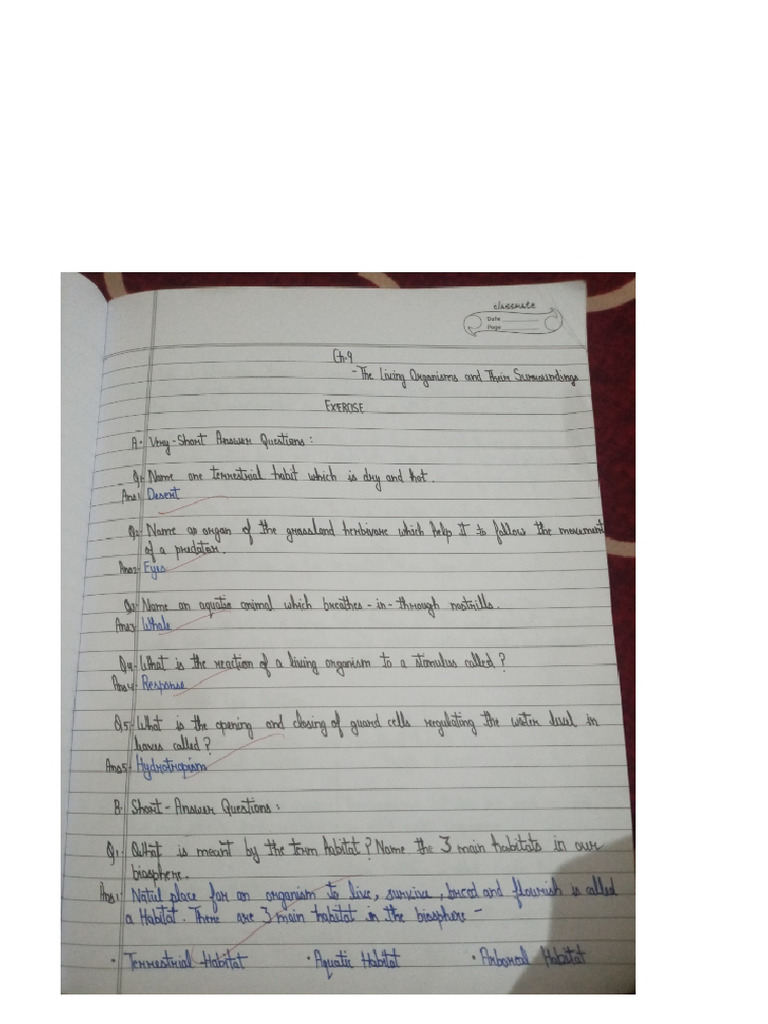 classmate
Date
Page
Ch.9
- The Living Organisms and Their Surroundings
EXERCISE
A. Very-Short Answer Questions :
Q1. Name one terrestrial habit which is dry and hot.
Ans1. Desert
Q2. Name as organ of the grassland herbivore which help it to follow the movement
of a predator.
Ans2. Eyes
Q3. Name an aquatic animal which breathes-in-through nostrills.
Ans3. Whale
Q4. What is the reaction of a living organism to a stimulus called?
Ans4. Response
Q5. What is the opening and closing of guard cells regulating the water level in
leaves called?
Ans5. Hydrotropism
B. Short-Answer Questions :
Q1. What is meant by the term habitat? Name the 3 main habitats in our
biosphere.
Ans1. Natul place for an organism to live, survive, breed and flourish is called
a Habitat. There are 3 main habitat in the biosphere -
- Terrestrial Habitat • Aquatic Habitat • Arboreal Habitat